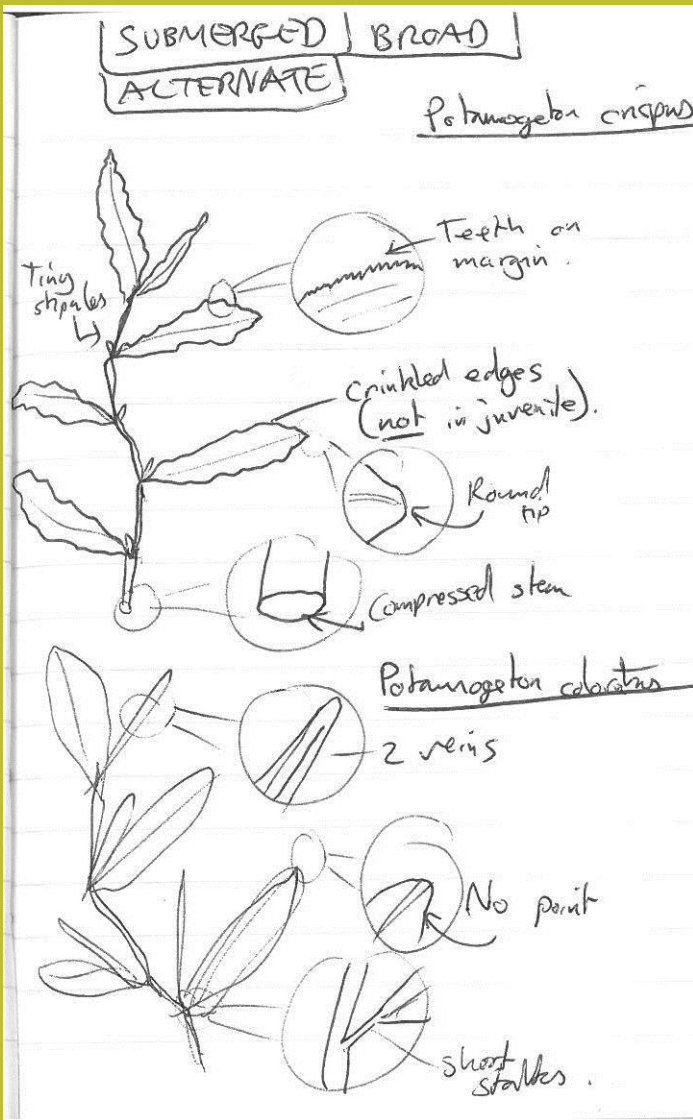 SUBMERGED BROAD
ALTERNATE
Potamogeton crispus
Teeth on
margin.
Tiny
stipules
Crinkled edges
(not in juvenile).
Round
tip
Compressed stem
Potamogeton coloratus
2 veins
No point
short
stalks.